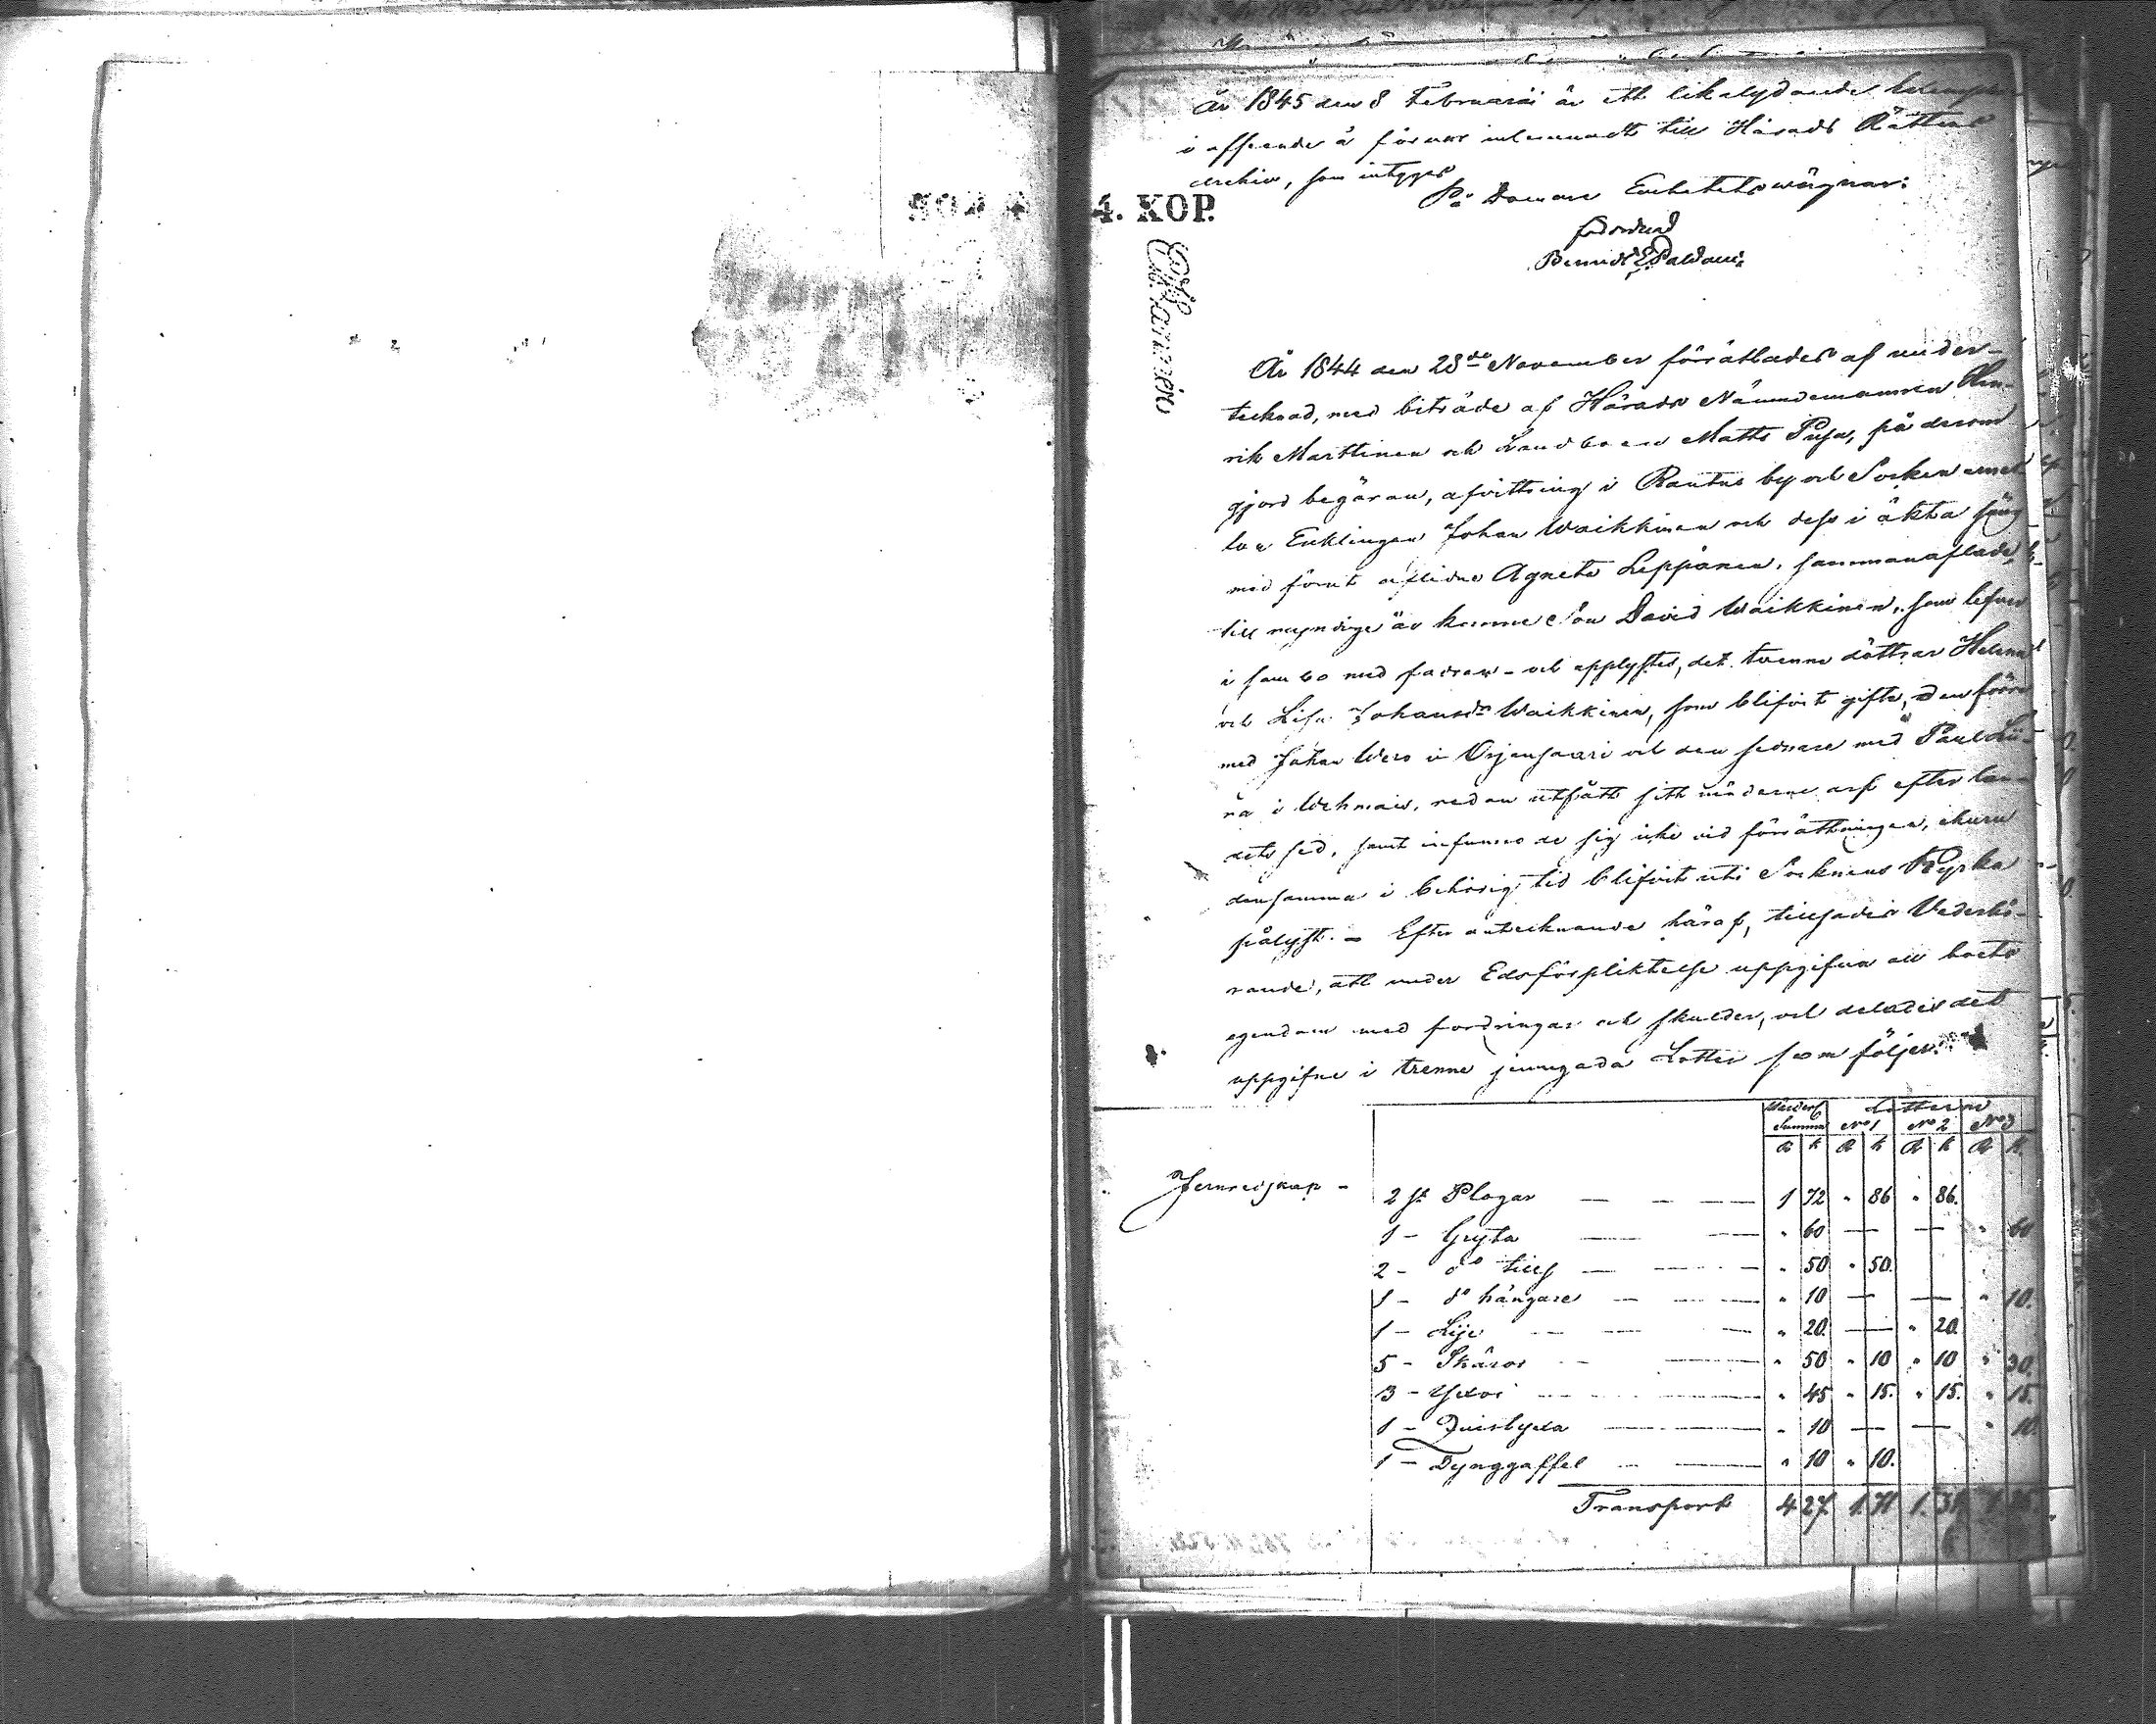 År 1845 den 8 Februarii är ett likalydande Exemplar
i afseende å förvar inlemnadt till Härads Rättens
Archiv, som intygges
På Domare Embetets wägnar:
Berndt E Paldani
4. KOP.
År 1844 den 28de November förrättades af under-
tecknad, med biträde af Härads Nämndemannen Hen-
rik Marttinen och Landboen Matts Pusa, på derom
gjord begäran, afvittring i Rautus by och Socken emel-
lan Enklingen Johan Waikkinen och dess i äkta säng
med förut aflidna Agneta Leppänen, sammanaflade,
till myndige år komne Son David Waikkinen, som lefver
i sambo med fadren - och upplystes, det tvenne döttrar Helena
och Lisa Johansdr Waikkinen, som blifvit gifta, den förra
med Johan Wero i Orjansaari och den sednare med Paul Lii-
ra i Wehmais, redan utfått sitt möderne arf efter lan-
dets sed, samt infunno de sig icke vid förrättningen, ehuru
densamma i behörig tid blifvit uti Socknens Kyrka
pålyst. - Efter antecknande häraf, tillsades Vederbö-
rande, att under Edsförpliktelse uppgifva all boets
egendom med fordringar och skulder, och delades det
uppgifne i trenne jemngoda Lotter som följer:
Summa Lotterne
No 1 No 2 No 3
R k R k R k R k
Jernredskap - 2 st Plogar — 1 72 " 86 " 86.
1 - Gryta — " 60 — — " 60
2 - do till — " 50 " 50.
1 - do hängare — " 10 — — " 10.
1 - Lije — " 20. — " 20.
5 - Skäror — " 50 " 10 " 10 " 30.
3 - Yxor — " 45 " 15. " 15. " 15.
1 - — " 10 — — " 10.
1 - Dynggaffel — " 10 " 10.
Transport 4 27. 1. 71 1. 31 1. 25.